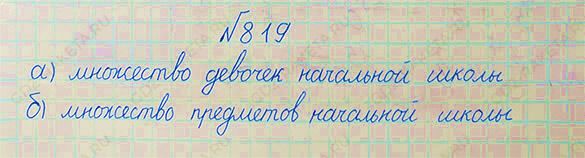 №819
а) множество девочек начальной школы
б) множество предметов начальной школы